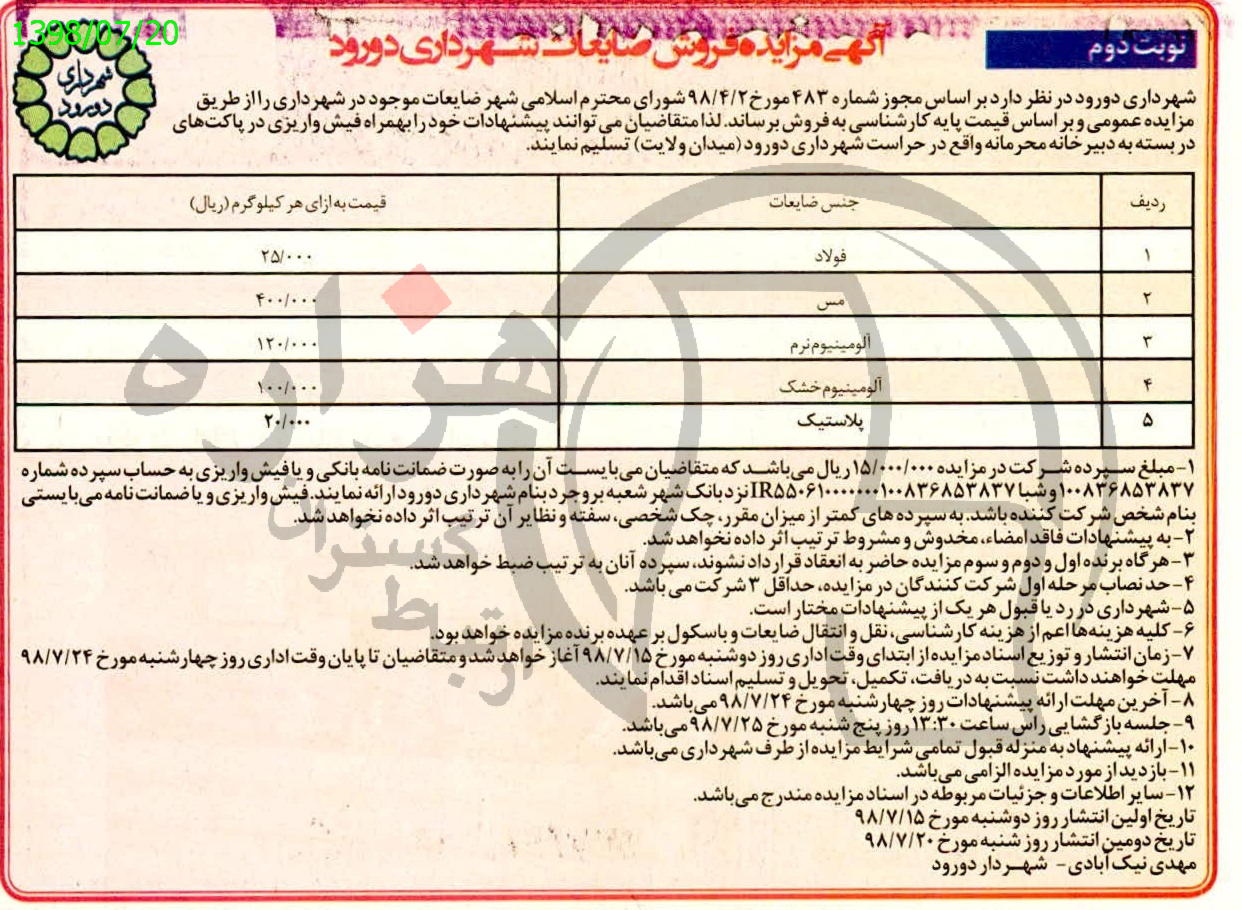 1398/07/20
نوبت دوم
آگهی مزایده فروش ضایعات شهرداری دورود
شهرداری دورود
شهرداری دورود در نظر دارد بر اساس مجوز شماره ۴۸۳ مورخ ۹۸/۴/۲ شورای محترم اسلامی شهر ضایعات موجود در شهرداری را از طریق
مزایده عمومی و بر اساس قیمت پایه کارشناسی به فروش برساند. لذا متقاضیان می توانند پیشنهادات خود را بهمراه فیش واریزی در پاکت های
در بسته به دبیرخانه محرمانه واقع در حراست شهرداری دورود (میدان ولایت) تسلیم نمایند.
ردیف جنس ضایعات قیمت به ازای هر کیلوگرم (ریال)
۱ فولاد ۲۵/۰۰۰
۲ مس ۴۰۰/۰۰۰
۳ آلومینیوم نرم ۱۲۰/۰۰۰
۴ آلومینیوم خشک ۱۰۰/۰۰۰
۵ پلاستیک ۲۰/۰۰۰
۱- مبلغ سپرده شرکت در مزایده ۱۵/۰۰۰/۰۰۰ ریال می باشد که متقاضیان می بایست آن را به صورت ضمانت نامه بانکی و یا فیش واریزی به حساب سپرده شماره
۱۰۰۸۳۶۸۵۳۸۳۷ و شبا IR۵۵۰۶۱۰۰۰۰۰۰۰۱۰۰۸۳۶۸۵۳۸۳۷ نزد بانک شهر شعبه بروجرد بنام شهرداری دورود ارائه نمایند. فیش واریزی و یا ضمانت نامه می بایستی
بنام شخص شرکت کننده باشد. به سپرده های کمتر از میزان مقرر، چک شخصی، سفته و نظایر آن ترتیب اثر داده نخواهد شد.
۲- به پیشنهادات فاقد امضاء، مخدوش و مشروط ترتیب اثر داده نخواهد شد.
۳- هرگاه برنده اول و دوم و سوم مزایده حاضر به انعقاد قرارداد نشوند، سپرده آنان به ترتیب ضبط خواهد شد.
۴- حد نصاب مرحله اول شرکت کنندگان در مزایده، حداقل ۳ شرکت می باشد.
۵- شهرداری در رد یا قبول هر یک از پیشنهادات مختار است.
۶- کلیه هزینه ها اعم از هزینه کارشناسی، نقل و انتقال ضایعات و باسکول بر عهده برنده مزایده خواهد بود.
۷- زمان انتشار و توزیع اسناد مزایده از ابتدای وقت اداری روز دوشنبه مورخ ۹۸/۷/۱۵ آغاز خواهد شد و متقاضیان تا پایان وقت اداری روز چهارشنبه مورخ ۹۸/۷/۲۴
مهلت خواهند داشت نسبت به دریافت، تکمیل، تحویل و تسلیم اسناد اقدام نمایند.
۸- آخرین مهلت ارائه پیشنهادات روز چهارشنبه مورخ ۹۸/۷/۲۴ می باشد.
۹- جلسه بازگشایی راس ساعت ۱۳:۳۰ روز پنج شنبه مورخ ۹۸/۷/۲۵ می باشد.
۱۰- ارائه پیشنهاد به منزله قبول تمامی شرایط مزایده از طرف شهرداری می باشد.
۱۱- بازدید از مورد مزایده الزامی می باشد.
۱۲- سایر اطلاعات و جزئیات مربوطه در اسناد مزایده مندرج می باشد.
تاریخ اولین انتشار روز دوشنبه مورخ ۹۸/۷/۱۵
تاریخ دومین انتشار روز شنبه مورخ ۹۸/۷/۲۰
مهدی نیک آبادی - شهردار دورود
هزاره
ارتباط گستران